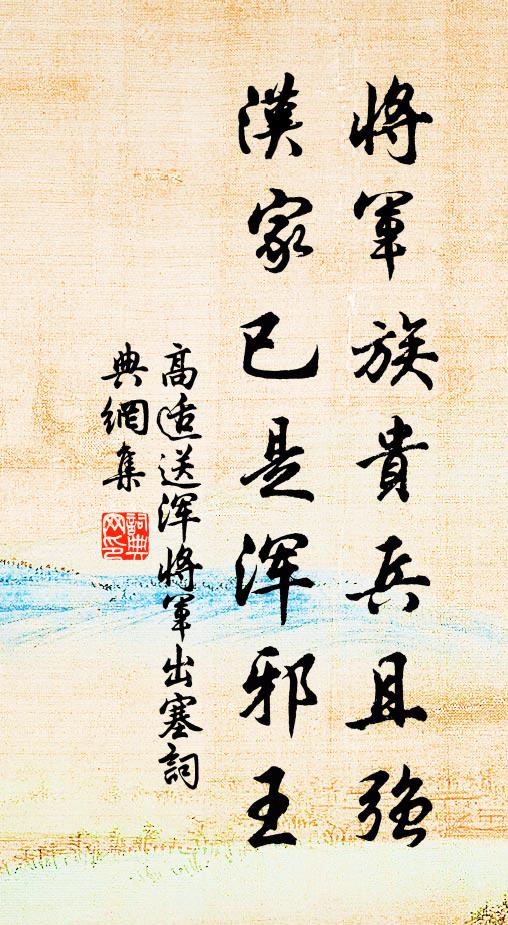 將軍族貴兵且強
漢家已是浑邪王
高适送浑將軍出塞詞
典網集
詞典
网印